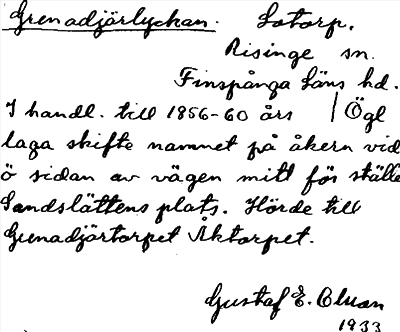 Grenadjärlyckan. Lotorp.
Risinge sn.
Finspånga Läns hd.
I handl. till 1856-60 års / Ögl
laga skifte namnet på åkern vid
ö sidan av vägen mitt för ställe
Sandslättens plats. Hörde till
Grenadjärtorpet Åktorpet.
Gustaf E.
1933